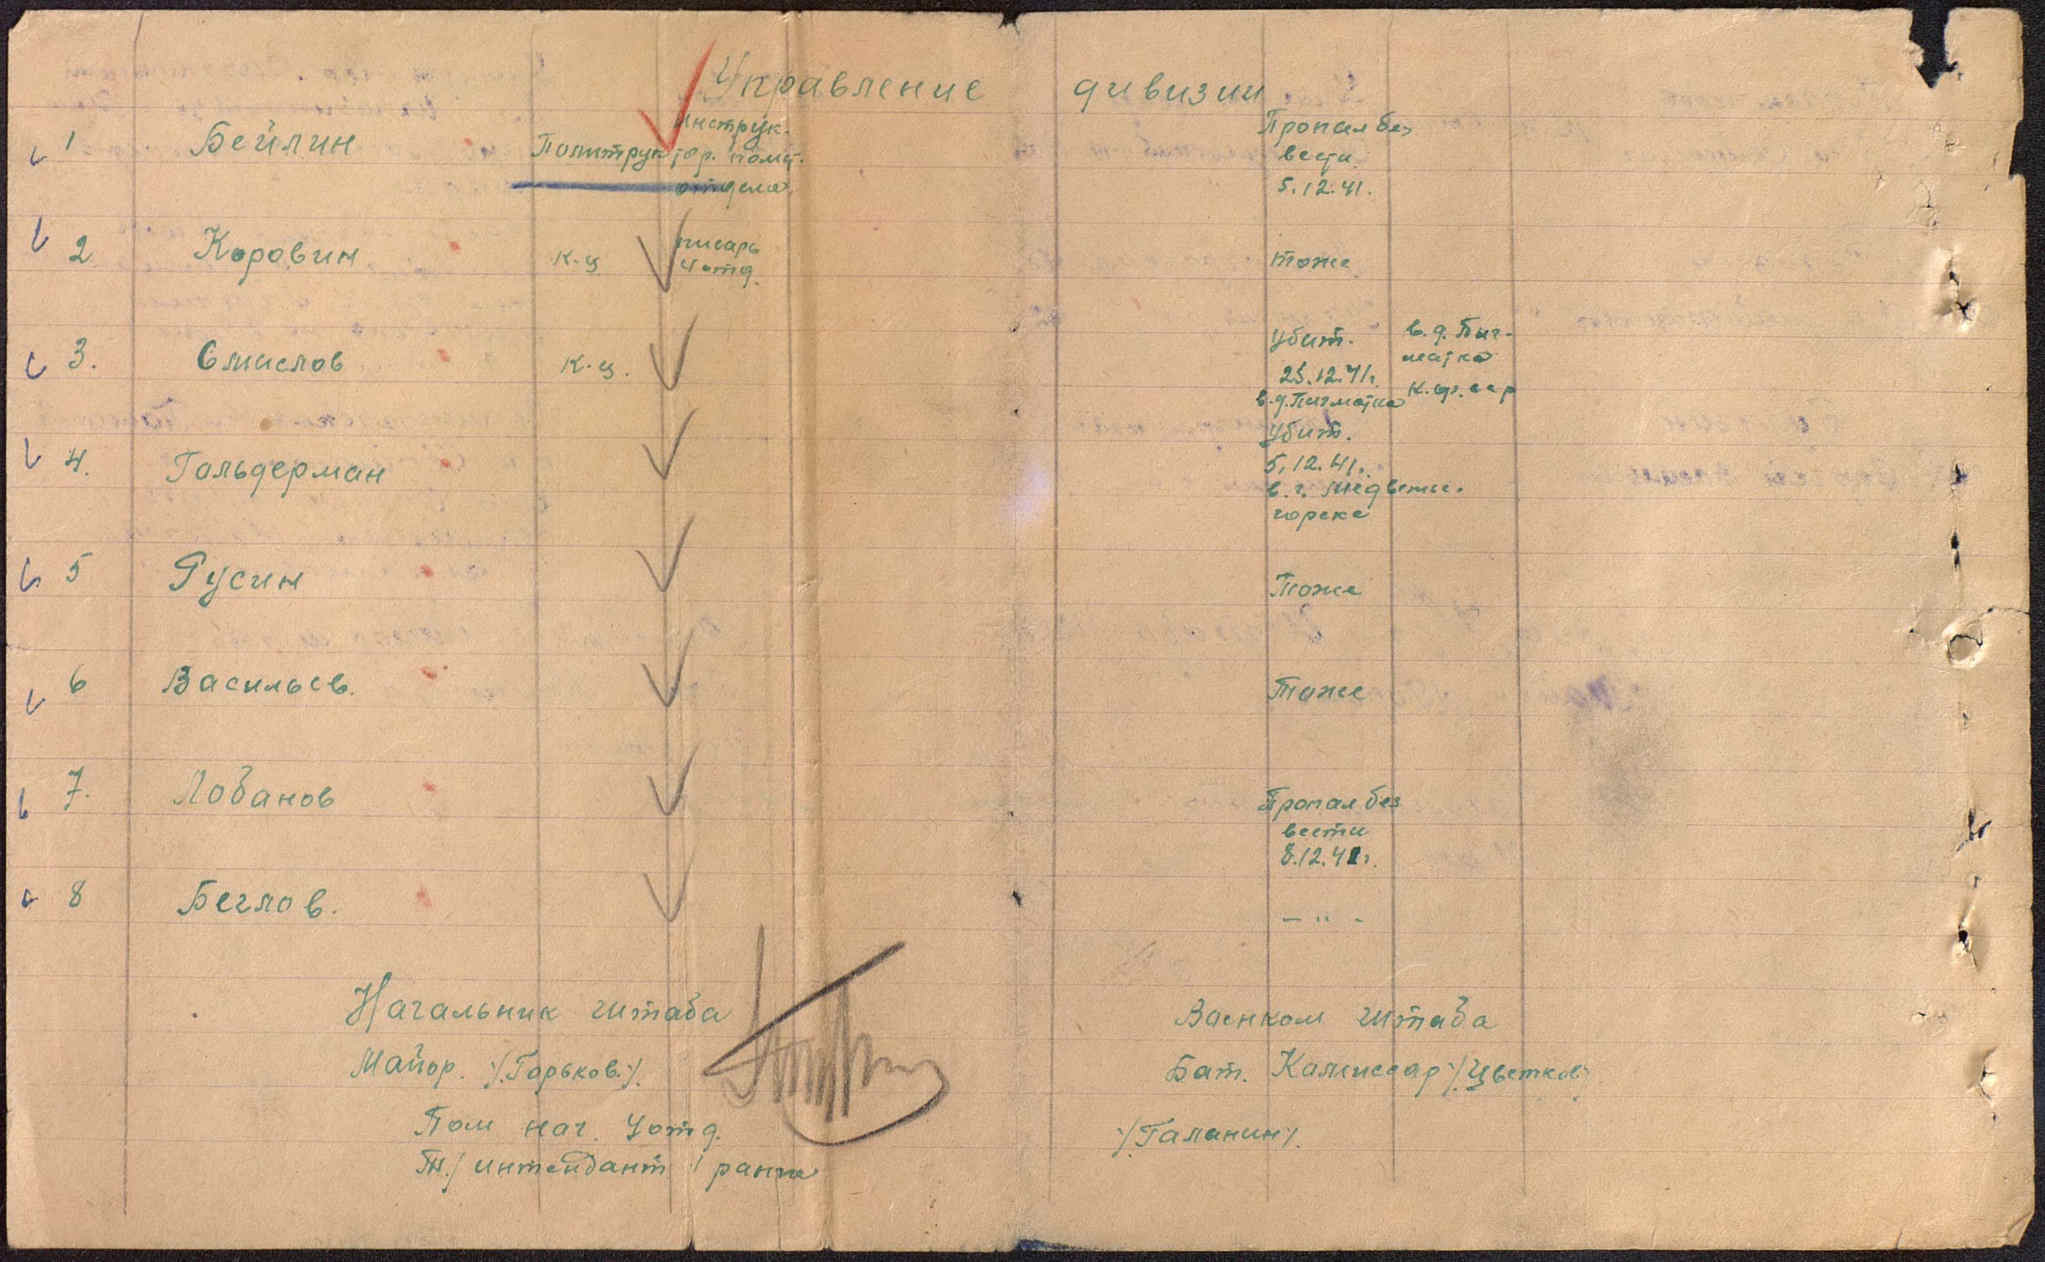 Управление дивизии
1 Бейлин Политрук Инструк- Пропал без
тор. полит. вести
отдела 5.12.41.
2 Коровин к-ц писарь тоже
4 отд.
3. Смислов к-ц. Убит. в.д. Пиг-
25.12.41г. матка
в.д. Пигматка к.ф.сср
4. Гольдерман Убит.
5.12.41г.
в г. Медвежье-
горске
5 Русин Тоже
6 Васильев. Тоже
7. Лобанов Пропал без
вести
8.12.41г.
8 Беглов. — " -
Начальник штаба Военком штаба
Майор. /.Горьков./. Бат. Комиссар /.Цветков/
Пом нач. 4 отд. /.Галанин/.
Тех./интендант 1 ранга